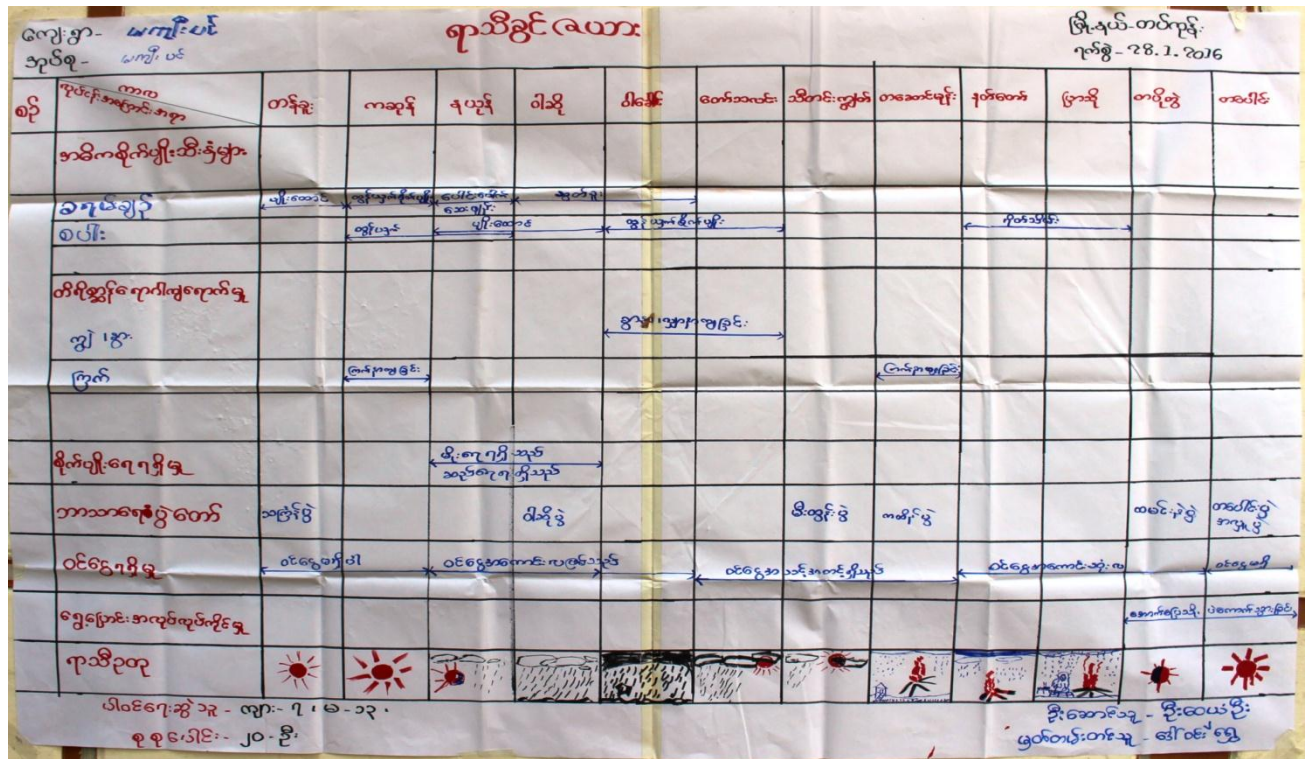 ကျေးရွာ - မကျီးပင်
ရာသီခွင်ဇယား
မြို့နယ် - တပ်ကုန်း
အုပ်စု - မကျီးပင်
ရက်စွဲ - 28.1.2016
စဉ်
ကာလ
လုပ်ငန်းအကြောင်းအရာ
တန်ခူး ကဆုန် နယုန် ဝါဆို ဝါခေါင် တော်သလင်း သီတင်းကျွတ် တဆောင်မုန်း နတ်တော် ပြာသို တပို့တွဲ တပေါင်း
အဓိကစိုက်ပျိုးသီးနှံများ
ခရမ်းချဉ် ပျိုးထောင် ထွန်ယှက်စိုက်ပျိုး ပေါင်းပေါက် ဆွတ်ခူး
ဆေးဖျန်း
စပါး ထွန်ယှက် ပျိုးထောင် ထွန်ယှက်စိုက်ပျိုး ရိတ်သိမ်း
တိရိစ္ဆာန်ရောဂါကျရောက်မှု
ကျွဲ ၊ နွား
ကြက် ကြက်နာကျခြင်း ကြက်နာကျခြင်း
စိုက်ပျိုးရေရရှိမှု မိုးရေရရှိသည်
ဆည်ရေရရှိသည်
ဘာသာရေးပွဲတော် သင်္ကြန်ပွဲ ဝါဆိုပွဲ မီးထွန်းပွဲ ကထိန်ပွဲ ထမင်းနဲပွဲ တပေါင်းပွဲ
အလှူပွဲ
ဝင်ငွေရရှိမှု ဝင်ငွေမရှိပါ ဝင်ငွေအကောင်းလဖြစ်သည် ဝင်ငွေအသင့်အတင့်ရှိသည် ဝင်ငွေအကောင်းဆုံးလ ဝင်ငွေမရှိ
ရွှေ့ပြောင်းအလုပ်လုပ်ကိုင်မှု အောက်ပြေသို့ ပဲကောက်သွားခြင်း
ရာသီဥတု
ပါဝင်ရေးဆွဲသူ - ကျား - ၇ ၊ မ - ၁၃ ၊
စုစုပေါင်း - ၂၀ - ဦး
ဦးဆောင်သူ - ဦးဝေယံဦး
မှတ်တမ်းတင်သူ - ဒေါ်ဝင်းရွှေ